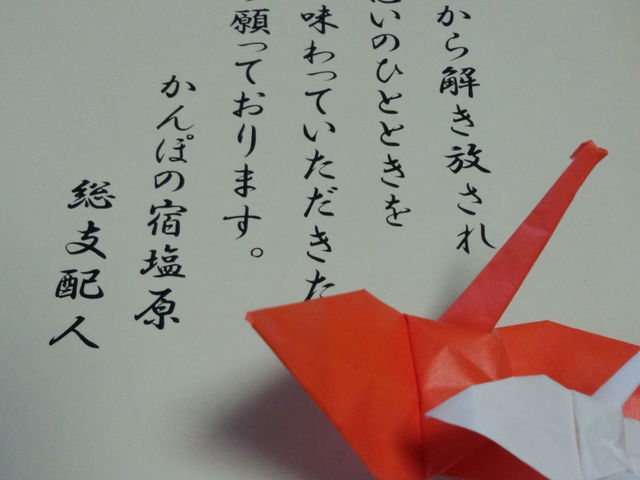 から解き放され
いのひとときを
味わっていただきた
願っております。
かんぽの宿塩原
総支配人